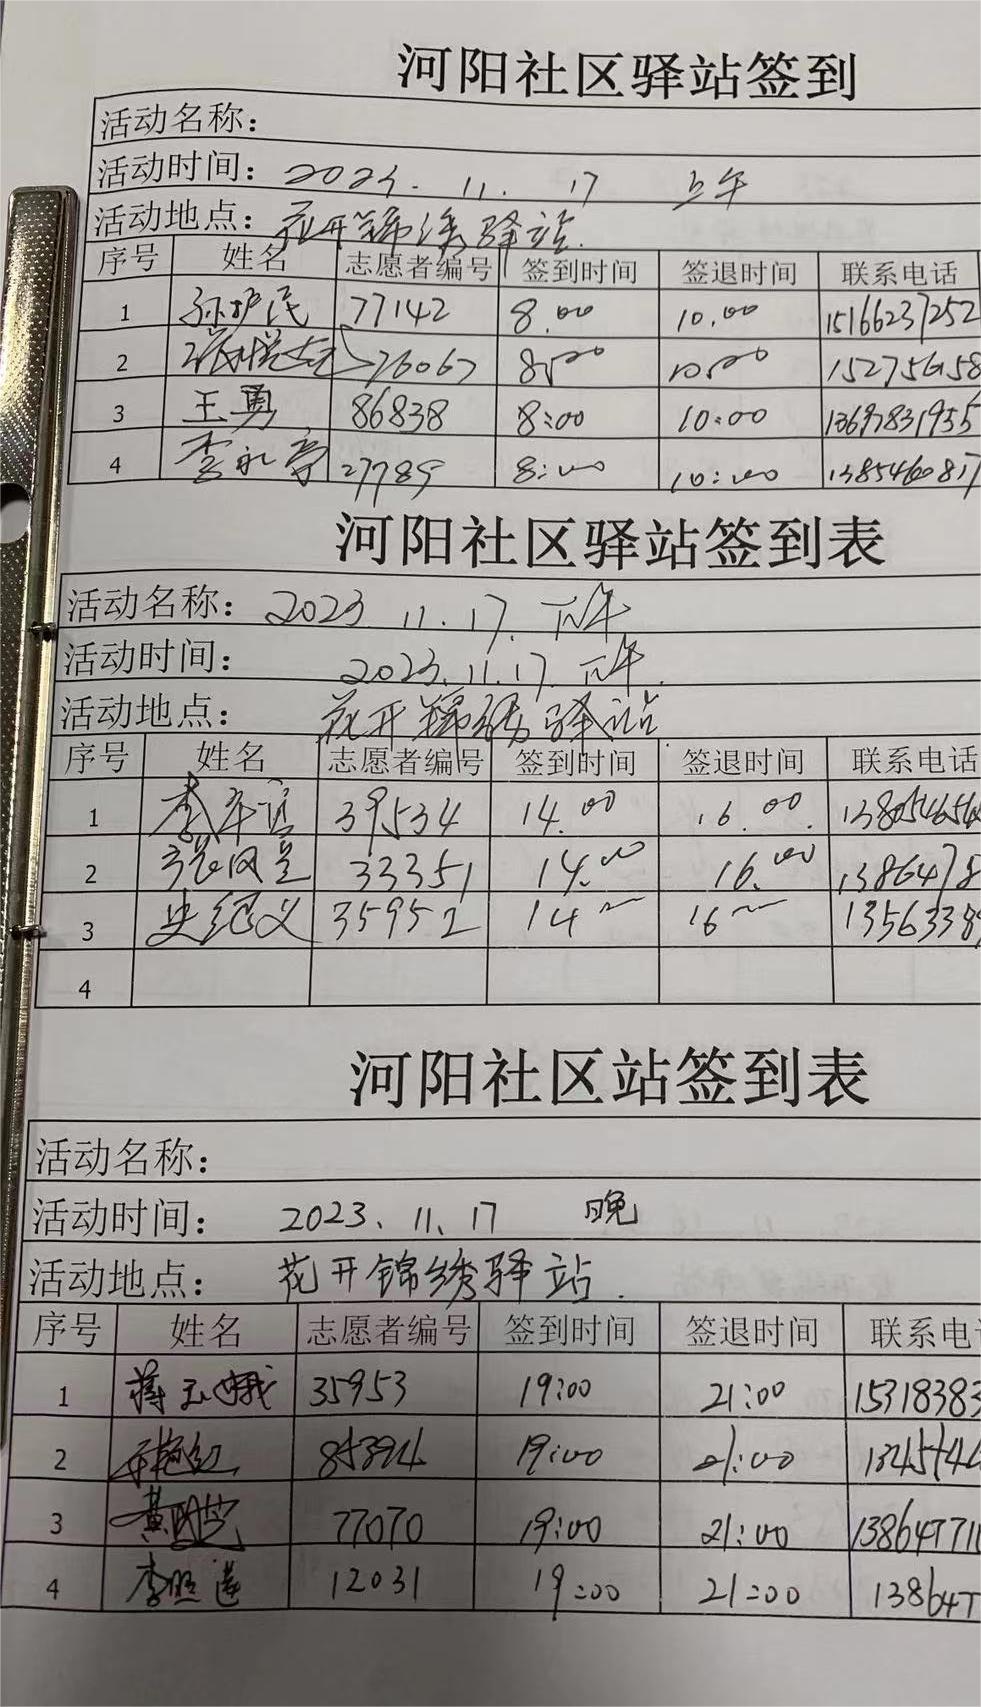 河阳社区驿站签到
活动名称：
活动时间：2023. 11. 17 上午
活动地点：花开锦绣驿站.
序号 姓名 志愿者编号 签到时间 签退时间 联系电话
1 孙护民 77142 8.00 10.00 15166237252
2 26067 8:00 10:00
3 王勇 86838 8:00 10:00
4 李永亭 27789 8:00 10:00
河阳社区驿站签到表
活动名称：2023 11.17. 下午
活动时间：2023.11.17. 下午.
活动地点：花开锦绣驿站.
序号 姓名 志愿者编号 签到时间 签退时间 联系电话
1 39534 14.00 16.00
2 33351 14.00 16.00 1386478
3 史纪义 35952 14 16 1356338
4
河阳社区站签到表
活动名称：
活动时间：2023、11、17 晚
活动地点：花开锦绣驿站.
序号 姓名 志愿者编号 签到时间 签退时间 联系电
1 蒋玉娥 35953 19:00 21:00 15318383
2 19:00 21:00
3 77070 19:00 21:00 138647711
4 李照莲 12031 19:00 21:00 138647